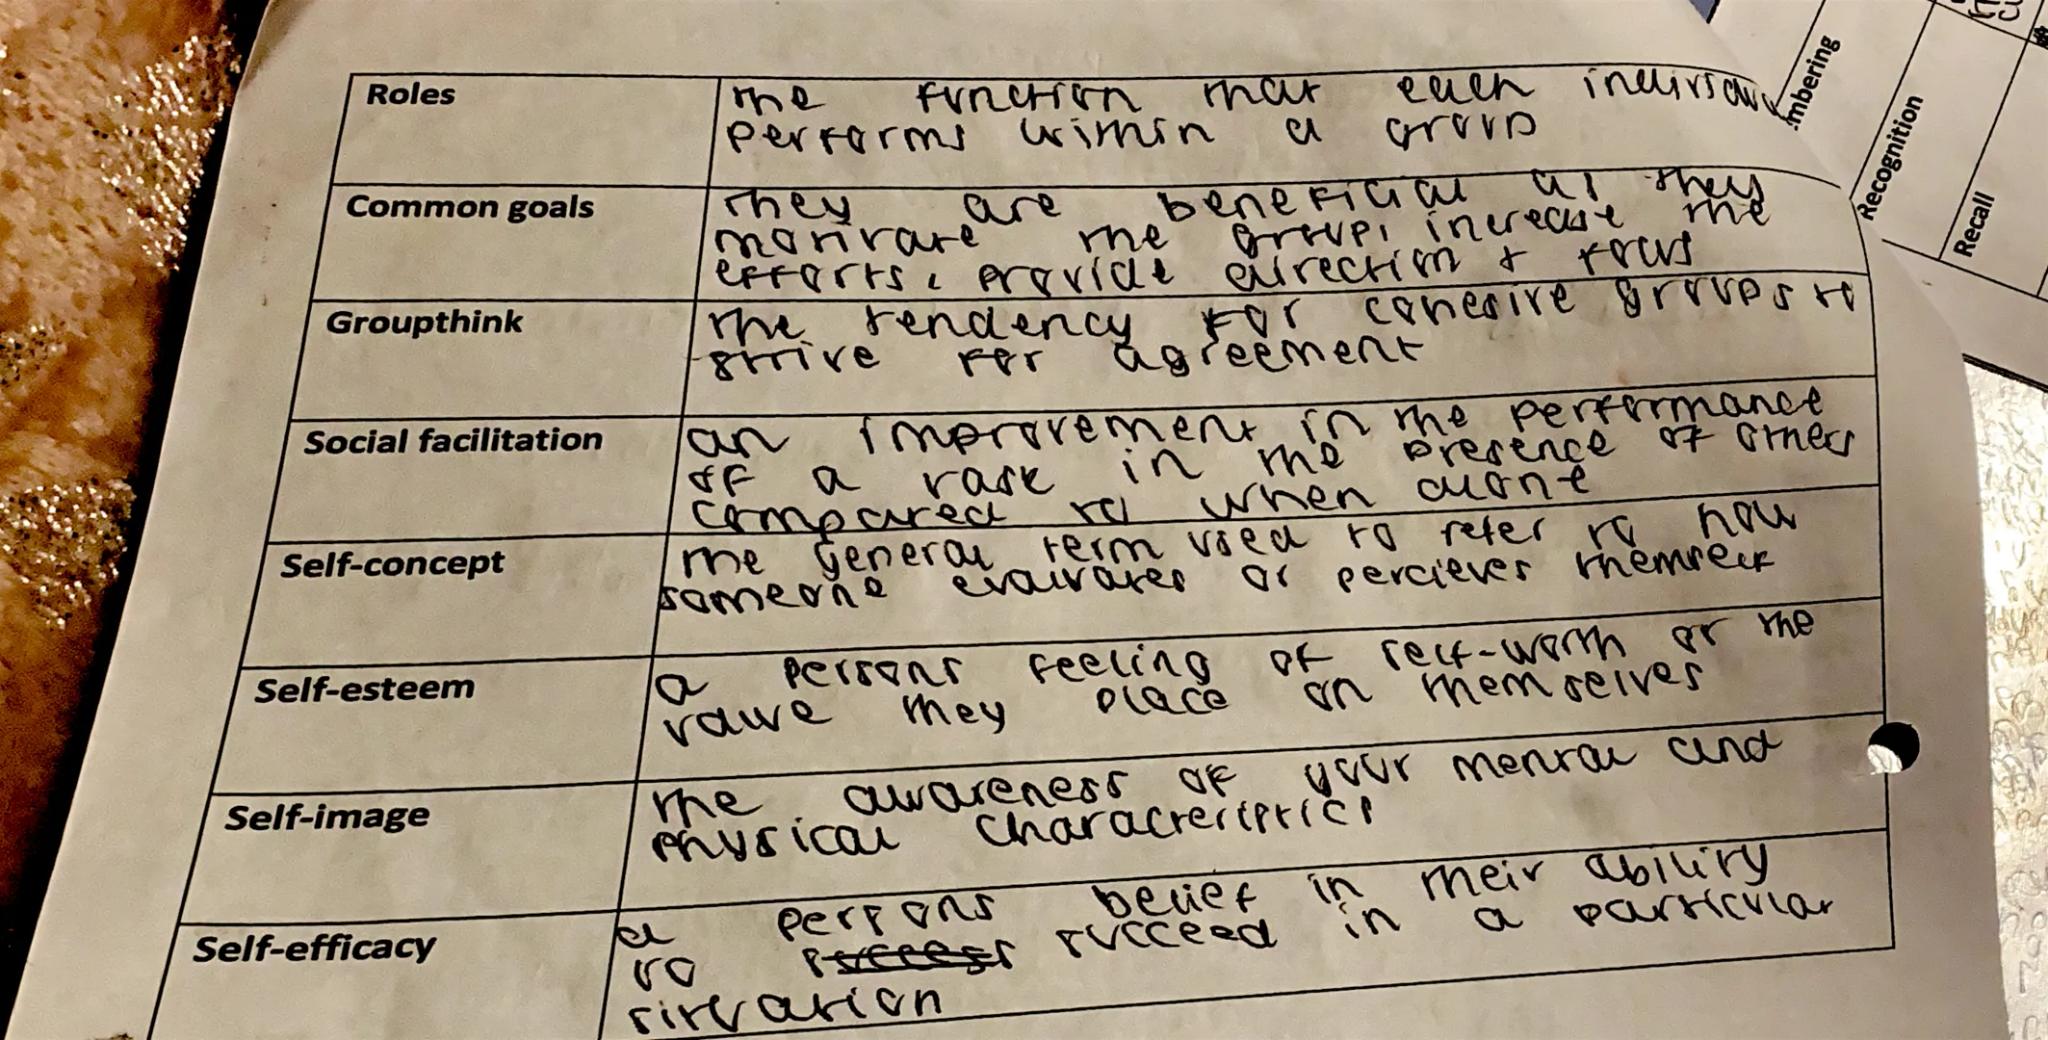 Roles
the function that each individual
performs within a group
Common goals
they are beneficial as they
motivate the group, increase the
efforts, provide direction + focus
Groupthink
the tendency for cohesive groups to
strive for agreement
Social facilitation
an improvement in the performance
of a task in the presence of others
compared to when alone
Self-concept
the general term used to refer to how
someone evaluates or percieves themself
Self-esteem
a persons feeling of self-worth or the
value they place on themselves
Self-image
the awareness of your mental and
physical characteristics
Self-efficacy
a persons belief in their ability
to success succeed in a particular
situation
mbering
Recognition
Recall